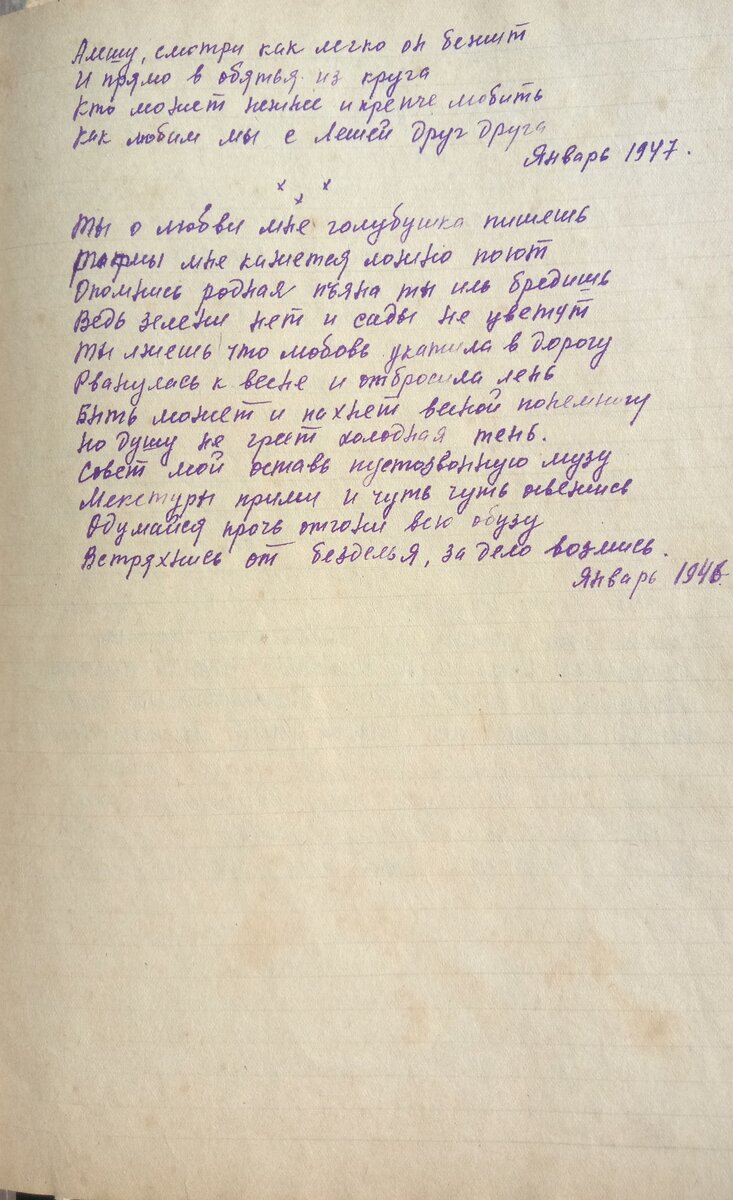 смотри как легко он бежит
И прямо в обятья из круга
Кто может нежнее и крепче любить
Как любим мы с Лешей друг друга
Январь 1947.
х х х
Ты о любви мне голубушка пишешь
мне кажется ложно поют
Опомнись родная пьяна ты иль бредишь
Ведь зелени нет и сады не цветут
Ты лжешь что любовь укатила в дорогу
Рванулась к весне и отбросила лень
Быть может и пахнет весной понемногу
но душу не греет холодная тень.
Совет мой оставь пустозвонную музу
Микстуры прими и чуть чуть
Одумайся прочь отгони всю обузу
Встряхнись от безделья, за дело возмись.
Январь